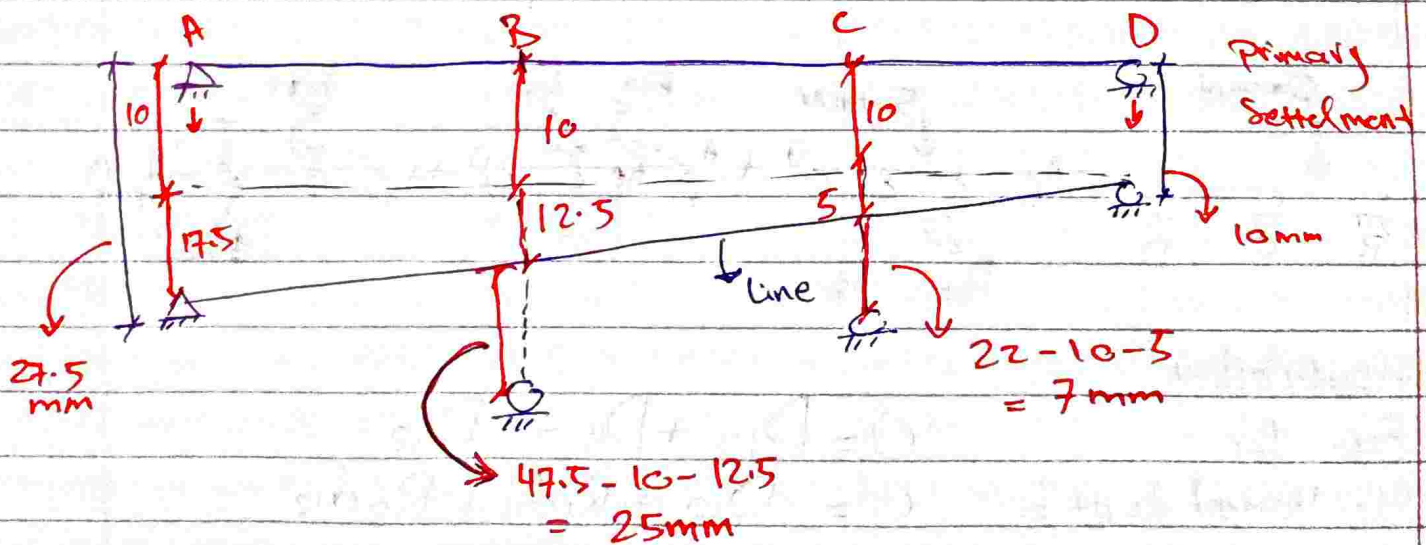 A B C D
Primary
Settelment
10
10
10
12.5
5
17.5
10mm
Line
27.5
mm
22-10-5
= 7mm
47.5-10-12.5
= 25mm